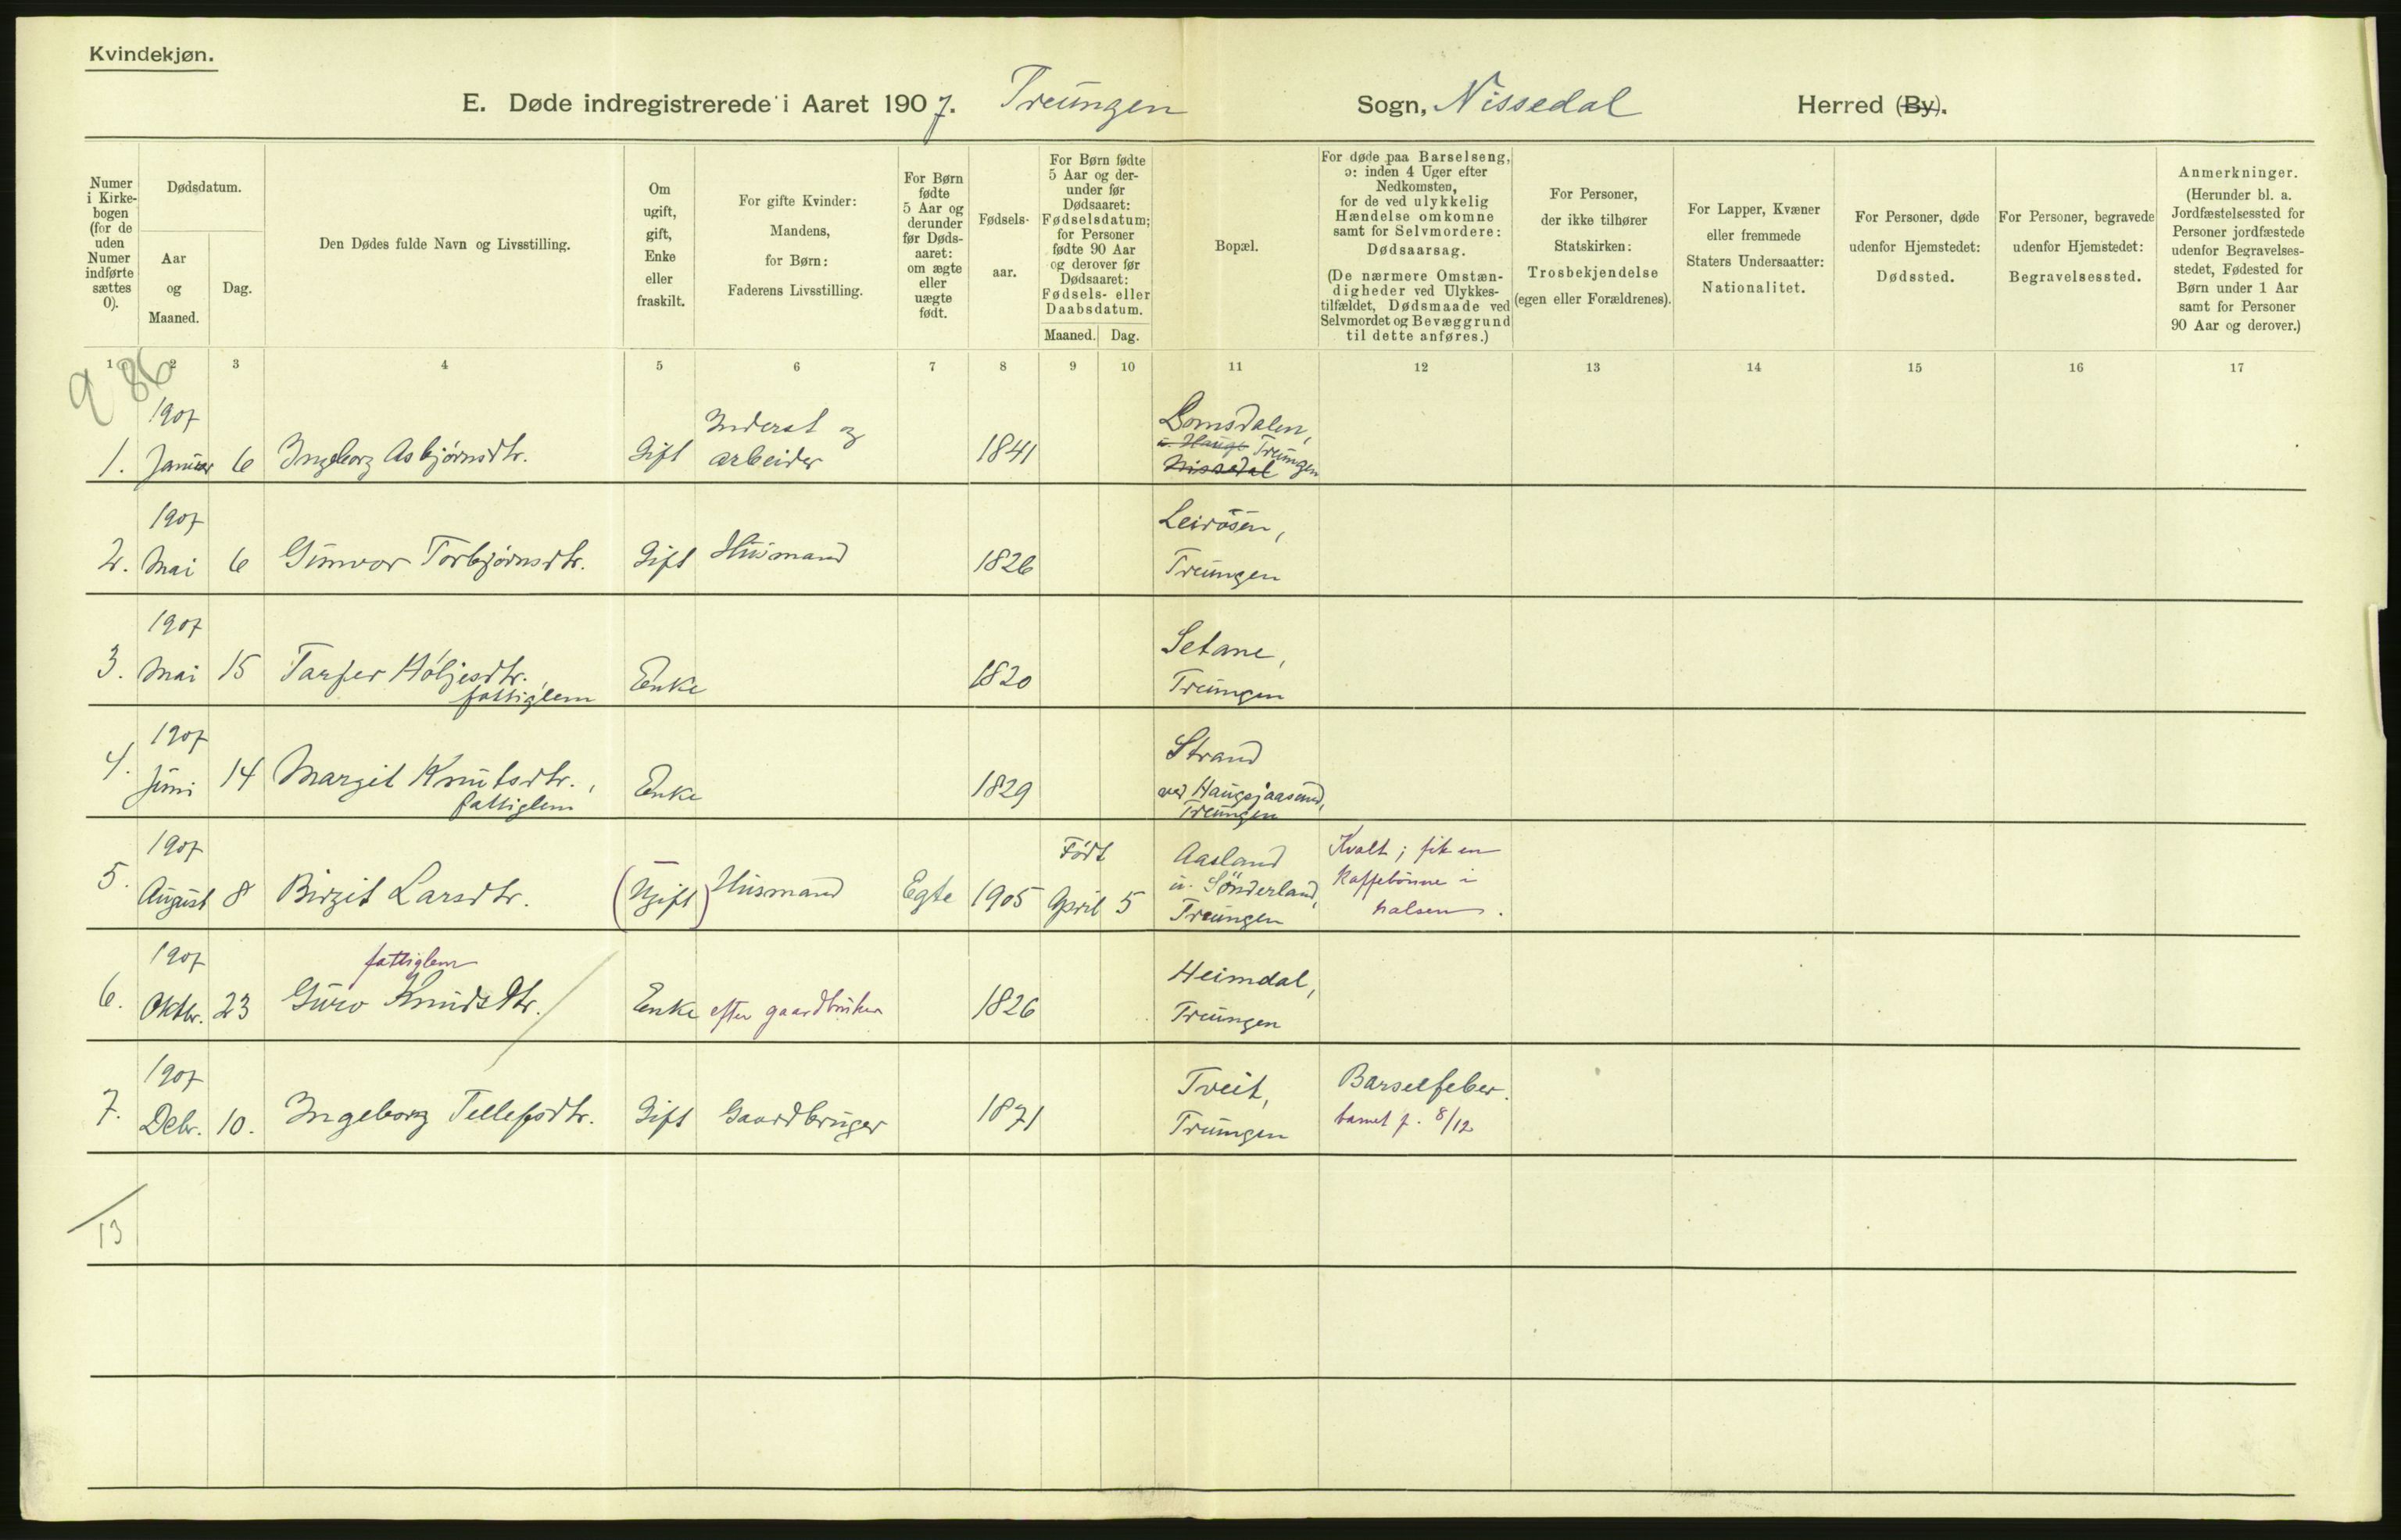 Kvindekjøn.
E. Døde indregistrerede i Aaret 1907. Treungen Sogn, Nissedal Herred (By).
Numer i Kirkebogen (for de uden Numer indførte sættes 0).
Dødsdatum.
Aar og Maaned.
Dag.
Den Dødes fulde Navn og Livsstilling.
Om ugift, gift, Enke eller fraskilt.
For gifte Kvinder: Mandens, for Børn: Faderens Livsstilling.
For Børn fødte 5 Aar og derunder før Dødsaaret: om ægte eller uægte født.
Fødselsaar.
For Børn fødte 5 Aar og derunder før Dødsaaret: Fødselsdatum; for Personer fødte 90 Aar og derover før Dødsaaret: Fødsels- eller Daabsdatum.
Maaned. Dag.
Bopæl.
For døde paa Barselseng, ɔ: inden 4 Uger efter Nedkomsten, for de ved ulykkelig Hændelse omkomne samt for Selvmordere: Dødsaarsag.
(De nærmere Omstændigheder ved Ulykkestilfældet, Dødsmaade ved Selvmordet og Bevæggrund til dette anføres.)
For Personer, der ikke tilhører Statskirken: Trosbekjendelse (egen eller Forældrenes).
For Lapper, Kvæner eller fremmede Staters Undersaatter: Nationalitet.
For Personer, døde udenfor Hjemstedet: Dødssted.
For Personer, begravede udenfor Hjemstedet: Begravelsessted.
Anmerkninger.
(Herunder bl. a. Jordfæstelsessted for Personer jordfæstede udenfor Begravelsesstedet, Fødested for Børn under 1 Aar samt for Personer 90 Aar og derover.)
1 2 3 4 5 6 7 8 9 10 11 12 13 14 15 16 17
9 86
1907 Inderst og Lomsdalen,
u. Hauge Treungen
1. Januar 6 Ingeborg Asbjørnsdtr. Gift arbeider 1841 Nissedal
1907 Leirösen,
2. Mai 6 Gunvor Torbjørnsdtr. Gift Husmand 1826 Treungen
1907 Setane,
3. Mai 15 Tarjer Höljesdtr., Enke 1820 Treungen
fattiglem
1907 Strand
4. Juni 14 Margit Knutsdtr., Enke 1829 ved Haugsjaasund,
fattiglem Treungen
1907 Født Aasland Kvalt; fik en
5. August 8 Birgit Larsdtr. (Ugift) Husmand Egte 1905 April 5 u. Sönderland, kaffebønne i
Treungen halsen.
1907 fattiglem Heimdal,
6. Oktbr. 23 Guro Knudsdtr. Enke efter gaardbruker 1826 Treungen
1907 Tveit, Barselfeber.
7. Debr. 10. Ingeborg Tellefsdtr. Gift Gaardbruger 1871 Treungen barnet f. 8/12
13